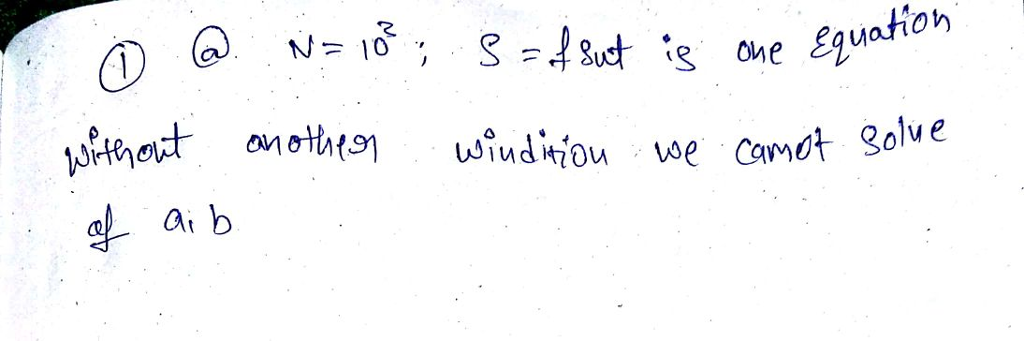 ① ⓐ N = 10³ ; S = f Sut is one Equation
without another windition we camot Solve
of a, b